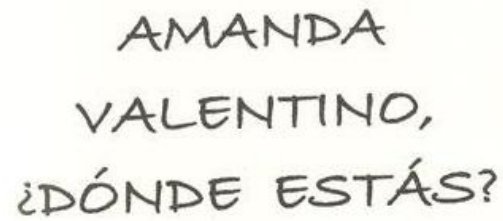 AMANDA
VALENTINO,
¿DÓNDE ESTÁS?